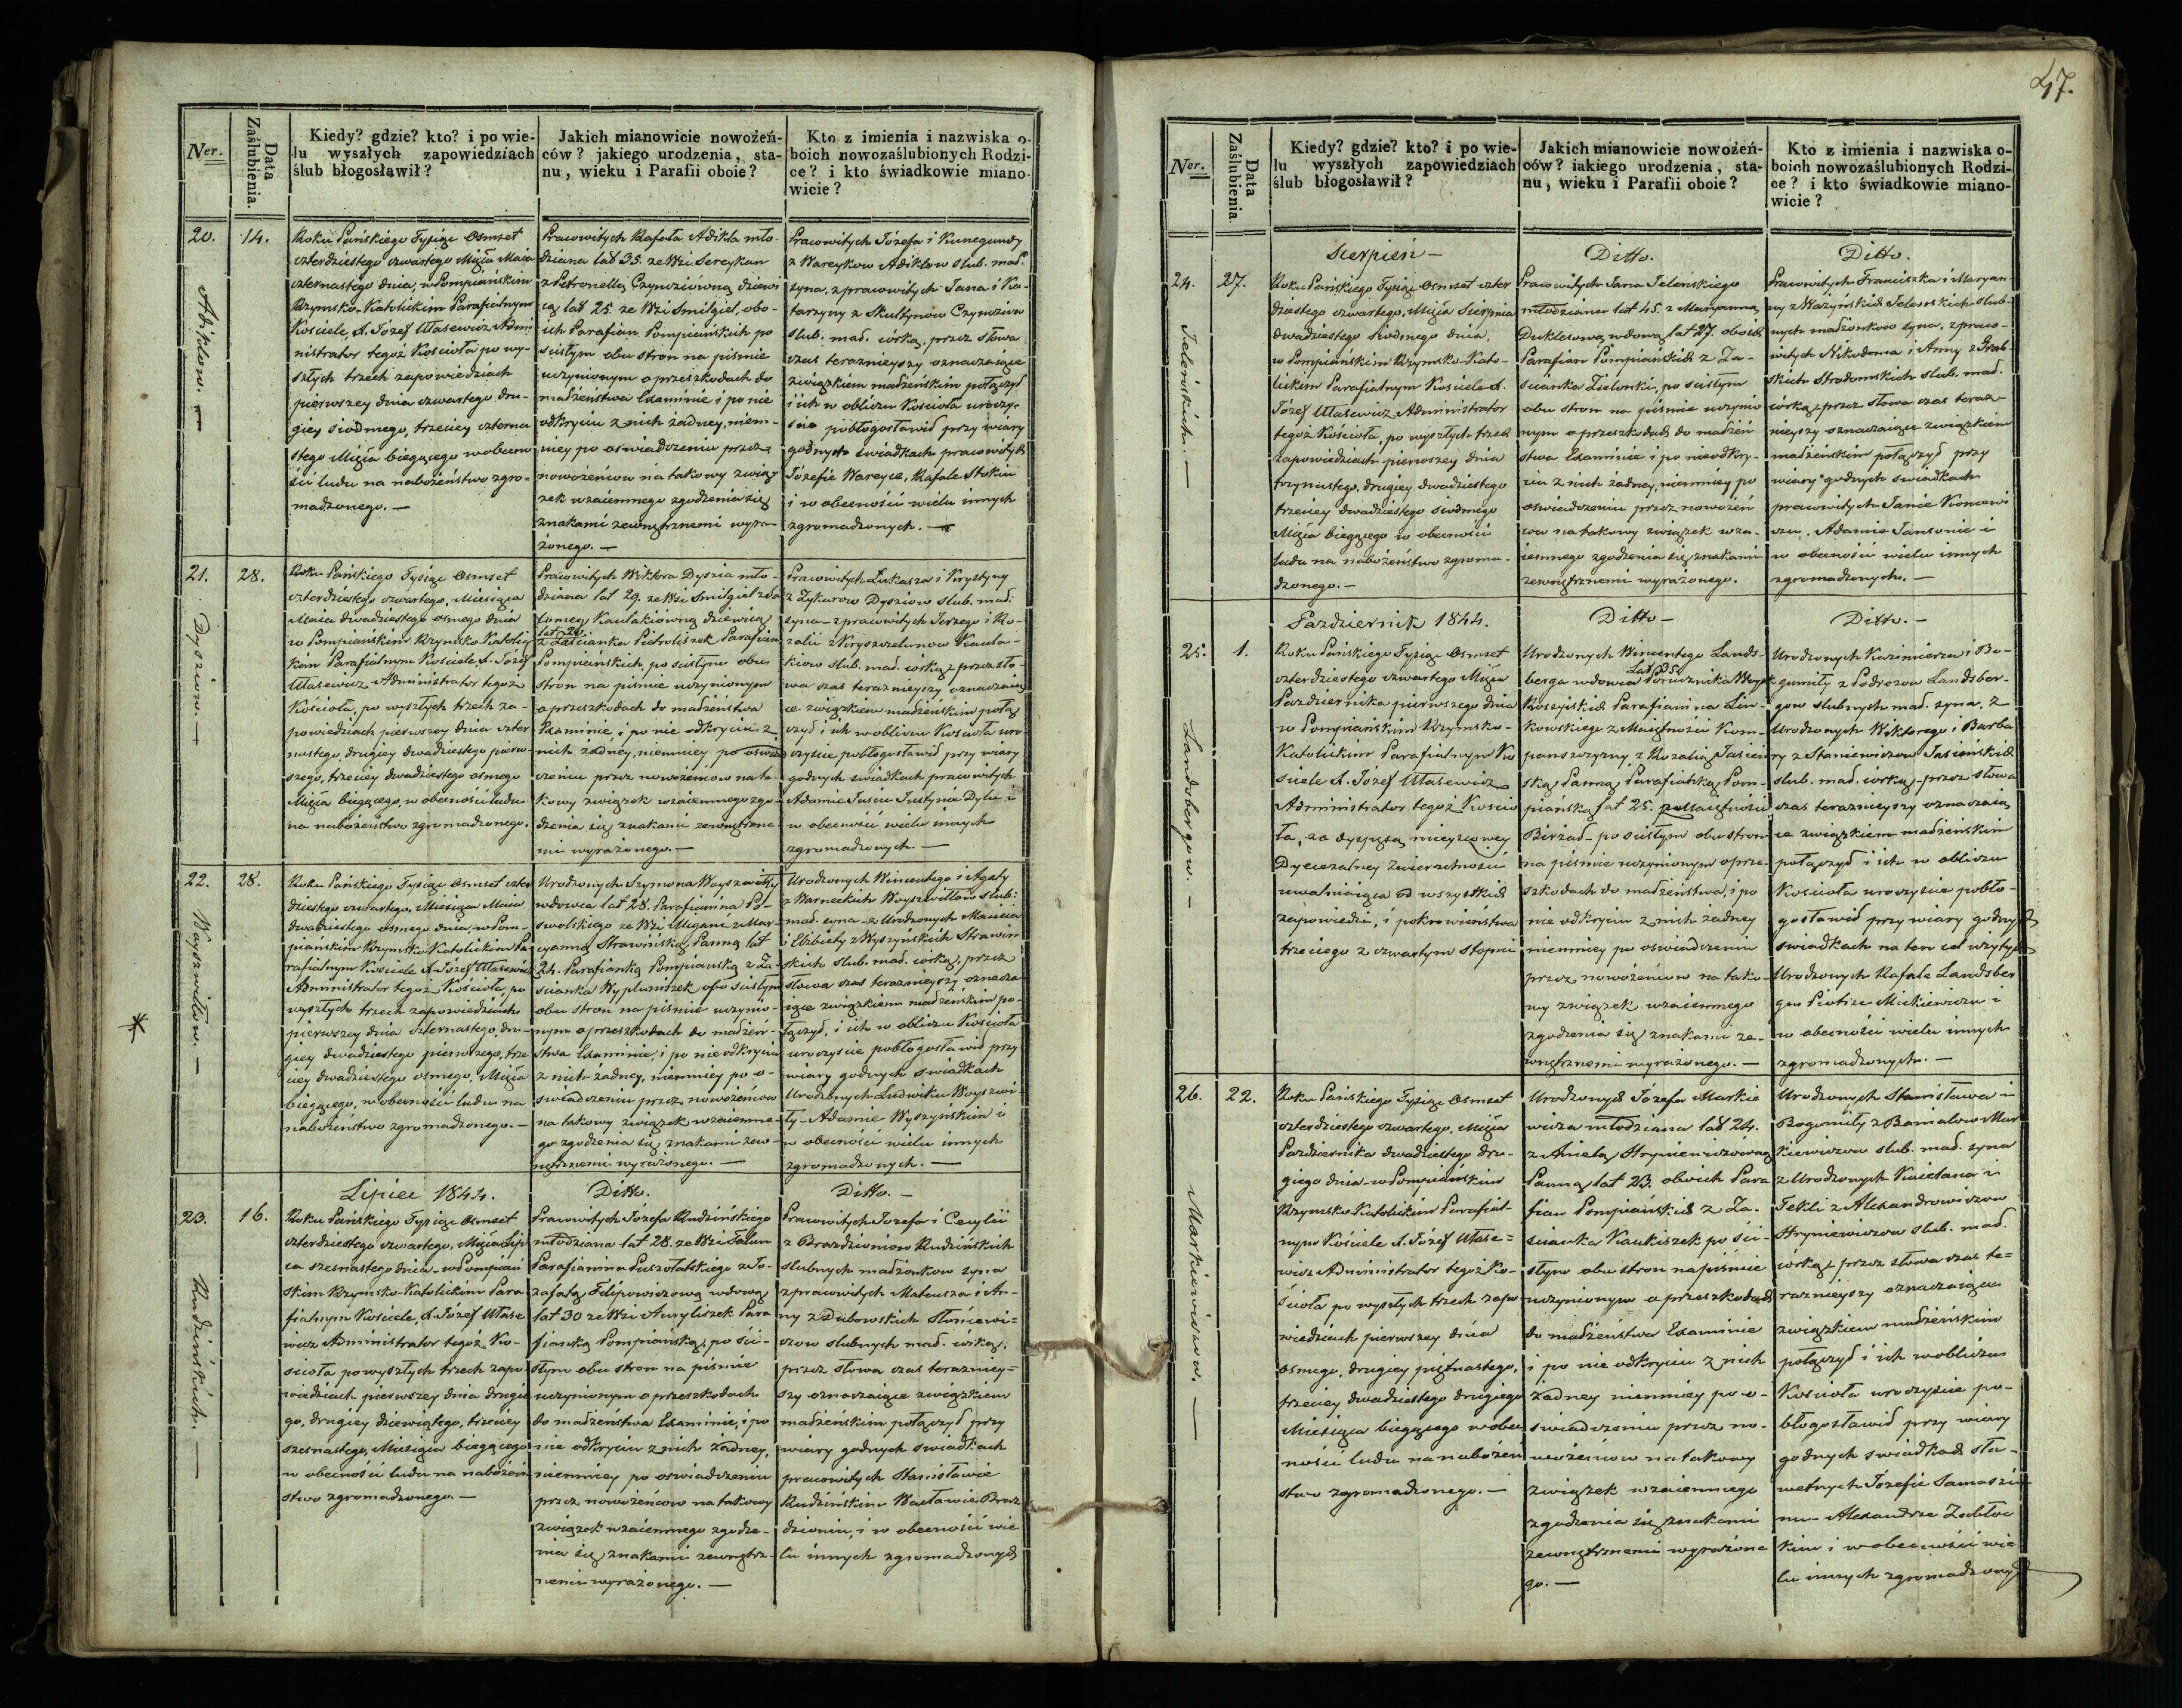 47.
Ner.
Data
Zaślubienia.
Kiedy? gdzie? kto? i po wie-
lu wyszłych zapowiedziach
ślub błogosławił?
Jakich mianowicie nowożeń-
ców? jakiego urodzenia, sta-
nu, wieku i Parafii oboie?
Kto z imienia i nazwiska o-
boich nowozaślubionych Rodzi-
ce? i kto świadkowie miano-
wicie?
20.
14.
Abiklow. —
Roku Pańskiego Tysiąc Osmset
czterdziestego czwartego Msca Maia
czternastego dnia, w Pompiańskim
Rzymsko-Katolickim Parafialnym
Kościele, X. Józef Ułasewicz Admi
nistrator tegoż Kościoła po wy-
szłych trzech zapowiedziach
pierwszey dnia czwartego dru-
giey siodmego, trzeciey czterna
stego Msca biegącego w obecno
ści ludu na nabożeństwo zgro-
madzonego. —
Pracowitych Rafała Abikla mło-
dziana lat 35. ze Wsi Sereykan
z Petronellą Czyndziówną dziewi
cą lat 25. ze Wsi Smilgiel, obo-
ich Parafian Pompiańskich po
scisłym obu stron na piśmie
uczynionym o przeszkodach do
madżeństwa Examinie i po nie
odkryciu z nich żadney, niem-
niey po oswiadczeniu przez
nowożeńcow na takowy związ
zek wzaiemnego zgodzenia się
znakami zewnętrznemi wyra-
żonego. —
Pracowitych Józefa i Kunegundy
z Wareykow Abiklow slub. mad.
syna, z pracowitych Jana i Ka-
tarzyny z Skultynow Czyndziow
slub. mad. córką, przez słowa
czas teraznieyszy oznaczaiące
związkiem madżeńskim połączył
i ich w obliczu Kościoła uroczy-
scie pobłogosławił przy wiary
godnych świadkach pracowitych
Józefie Wareyce, Rafale Stokiu
i w obecności wielu innych
zgromadzonych. —
21.
28.
Dysziow. —
Roku Pańskiego Tysiąc Osmset
czterdziestego czwartego, Miesiąca
Maia dwadziestego osmego dnia
w Pompiańskim Rzymsko Katolic
kim Parafialnym Kościele, X. Józef
Ułasewicz Administrator tegoż
Kościoła, po wyszłych trzech za-
powiedziach pierwszey dnia czter
nastego, drugiey dwadziestego pierw-
szego, trzeciey dwadziestego osmego
Msca biegącego, w obecności ludu
na nabożeństwo zgromadzonego.
Pracowitych Wiktora Dyszia mło-
dziana lat 29. ze Wsi Smilgiel z Sa
lomeą Kaulakiowną dziewicą
lat 20
z Zascianka Piotroliszek Parafian
Pompiańskich, po scisłym obu
stron na piśmie uczynionym
o przeszkodach do madżeństwa
Examinie, i po nie odkryciu z
nich żadney, niemniey po oswiad
czeniu przez nowożeńcow na ta-
kowy związek wzaiemnego zgo-
dzenia się znakami zewnętrzne-
mi wyrażonego. —
Pracowitych Łukasza i Krystyny
z Zykarow Dysziow slub. mad.
syna — z pracowitych Jerzego i Ro-
zalii z Kryszczelunow Kaula-
kiow slub. mad. córką, przez sło-
wa czas teraznieyszy oznaczaią
ce związkiem madżeńskim połą
czył i ich w obliczu Kościoła uro
czyscie pobłogosławił przy wiary
godnych świadkach pracowitych
Adamie Jusciu Justynie Dylu i
w obecności wielu innych
zgromadzonych. —
22.
28.
Woyszwiłłow. —
*
Roku Pańskiego Tysiąc Osmset czter
dziestego czwartego, Miesiąca Maia
dwadziestego osmego dnia, w Pom-
piańskim Rzymsko Katolickim Pa
rafialnym Kościele X. Józef Ułasewicz
Administrator tegoż Kościoła, po
wyszłych trzech zapowiedziach
pierwszey dnia czternastego, dru-
giey dwadziestego pierwszego, trze
ciey dwadziestego osmego, Msca
biegącego, w obecności ludu na
nabożeństwo zgromadzonego. —
Urodzonych Szymona Woyszwiłły
wdowca lat 28. Parafianina Po-
swolskiego ze Wsi Migani z Mar-
cyanną Strawińską Panną lat
24. Parafianką Pompiańską z Za-
scianka Wypluniszek, po scisłym
obu stron na piśmie uczynio-
nym o przeszkodach do madżeń-
stwa Examinie, i po nie odkryciu
z nich żadney, niemniey po o-
swiadczeniu przez nowożeńcow
na takowy związek wzaiemne-
go zgodzenia się znakami zew-
nętrznemi wyrażonego. —
Urodzonych Wincentego i Agaty
z Warneckich Woyszwiłłow slub.
mad. syna — z Urodzonych Macieia
i Elżbiety z Wyszyńskich Strawiń
skich slub. mad. córką, przez
słowa czas teraznieyszy oznacza
iące związkiem madżeńskim po-
łączył, i ich w obliczu Kościoła
uroczyscie pobłogosławił przy
wiary godnych świadkach
Urodzonych Ludwiku Woyszwi-
ły — Adamie Wyszyńskim i
w obecności wielu innych
zgromadzonych. —
Lipiec 1844.
Ditto.
Ditto. —
23.
16.
Rudzińskich. —
Roku Pańskiego Tysiąc Osmset
czterdziestego czwartego, Msca Lip
ca szesnastego dnia, w Pompiań
skim Rzymsko-Katolickim Para
fialnym Kościele, X. Józef Ułase
wicz Administrator tegoż Ko-
scioła po wyszłych trzech zapo-
wiedziach pierwszey dnia drugie
go, drugiey dziewiątego, trzeciey
szesnastego, Miesiąca biegącego
w obecności ludu na nabożeń
stwo zgromadzonego. —
Pracowitych Józefa Rudzińskiego
młodziana lat 28. ze Wsi Talun
Parafianina Puszołatskiego z Jo-
zafatą Felipowiczową wdową
lat 30 ze Wsi Auryliszek Para
fianką Pompiańską, po ści-
słym obu stron na piśmie
uczynionym o przeszkodach
do madżeństwa Examinie, i po
nie odkryciu z nich żadney,
niemniey po oswiadczeniu
przez nowożeńcow na takowy
związek wzaiemnego zgodze-
nia się znakami zewnętrz-
nemi wyrażonego. —
Pracowitych Jozefa i Cecylii
z Brazdzioniow Rudzińskich
slubnych madżonkow syna
z pracowitych Mateusza i An-
ny z Dubowskich Słoniewi-
czow slubnych mad. córką,
przez słowa czas terazniey-
szy oznaczaiące związkiem
madżeńskim połączył przy
wiary godnych swiadkach
pracowitych Stanisławie
Rudzińskim Wacławie Braz
dzioniu, i w obecności wie
lu innych zgromadzonych
Ner.
Data
Zaślubienia.
Kiedy? gdzie? kto? i po wie-
lu wyszłych zapowiedziach
ślub błogosławił?
Jakich mianowicie nowożeń-
ców? iakiego urodzenia, sta-
nu, wieku i Parafii oboie?
Kto z imienia i nazwiska o-
boich nowozaślubionych Rodzi-
ce? i kto świadkowie miano-
wicie?
Sierpień —
Ditto.
Ditto.
24.
27.
Jeleńskich. —
Roku Pańskiego Tysiąc Osmset czter
dziestego czwartego, Msca Sierpnia
dwadziestego siodmego dnia,
w Pompiańskim Rzymsko-Kato-
lickim Parafialnym Kościele X.
Józef Ułasewicz Administrator
tegoż Kościoła, po wyszłych trzech
zapowiedziach pierwszey dnia
trzynastego, drugiey dwadziestego
trzeciey dwadziestego siodmego
Msca biegącego w obecności
ludu na nabożeństwo zgroma-
dzonego. —
Pracowitych Jana Jeleńskiego
młodziana lat 45. z Maryanną
Duktesową wdową lat 27. oboich
Parafian Pompiańskich z Za-
scianka Zielonki, po scisłym
obu stron na piśmie uczynio
nym o przeszkodach do madżeń
stwa Examinie i po nieodkry-
ciu z nich żadney, niemniey po
oswiadczeniu przez nowożeń
cow na takowy związek wza-
iemnego zgodzenia się znakami
zewnętrznemi wyrażonego.
Pracowitych Franciszka i Maryan
ny z Ważyńskich Jelenskich slub-
nych madżonkow syna, z praco-
witych Nikodema i Anny z Grab-
skich Strodomskich slub. mad.
córką, przez słowa czas teraz-
nieyszy oznaczaiące związkiem
madżeńskim połączył przy
wiary godnych swiadkach
pracowitych Janie Koncewi
czu, Adamie Jansonie i
w obecności wielu innych
zgromadzonych. —
Pazdziernik 1844.
Ditto —
Ditto. —
25.
1.
Landsbergow. —
Roku Pańskiego Tysiąc Osmset
czterdziestego czwartego Msca
Pazdziernika pierwszego dnia
w Pompiańskim Rzymsko-
Katolickim Parafialnym Ko
sciele X. Józef Ułasewicz
Administrator tegoż Koscio
ła, za dyspęsą mieyscowey
Dyecezalney Zwierzchności
uwalniaiąca od wszystkich
zapowiedzi, i pokrewieństwa
trzeciego z czwartym stopni
Urodzonych Wincentego Lands-
lat 35.
berga wdowca Porucznika Woysk
Rossyiskich Parafianina Lin-
kowskiego z Maiętności Kom-
panszczyzny z Rozalią Jasień
ską Panną Parafianką Pom-
piańską lat 25. z Maiętności
Birżad — po scisłym obu stron
na piśmie uczynionym o prze-
szkodach do madżeństwa, i po
nie odkryciu z nich żadney
niemniey po oswiadczeniu
przez nowożeńcow na tako-
wy związek wzaiemnego
zgodzenia się znakami ze-
wnętrznemi wyrażonego. —
Urodzonych Kazimierza i Bo-
gumiły z Podrezow Landsber-
gow slubnych mad. syna, z
Urodzonych Wiktorego i Barba
ry z Staniewiczow Jasieńskich
slub. mad. córką, przez słowa
czas teraznieyszy oznaczaią
ce związkiem madżeńskim
połączył i ich w obliczu
Kościoła uroczyscie pobło-
gosławił przy wiary godnych
swiadkach na ten cel użytych
Urodzonych Rafale Landsber
gu Piotrze Mickiewiczu i
w obecności wielu innych
zgromadzonych. —
26.
22.
Markiewiczow. —
Roku Pańskiego Tysiąc Osmset
czterdziestego czwartego, Msca
Pazdziernika dwadziestego dru-
giego dnia — w Pompiańskim
Rzymsko Katolickim Parafial-
nym Kościele X. Józef Ułase-
wicz Administrator tegoż Ko-
ścioła po wyszłych trzech zapo
wiedziach pierwszey dnia
osmego, drugiey piętnastego,
trzeciey dwadziestego drugiego
Miesiąca biegącego w obec
ności ludu na nabożeń
stwo zgromadzonego. —
Urodzonych Józefa Markie
wicza młodziana lat 24.
z Anielą Hryniewiczowną
Panną lat 23. obvich Para
fian Pompiańskich z Za-
scianka Kaukiszek po ści-
słym obu stron na piśmie
uczynionym o przeszkodach
do madżeństwa Examinie
i po nie odkryciu z nich
żadney niemniey po o-
swiadczeniu przez no-
wożeńcow na takowy
związek wzaiemnego
zgodzenia się znakami
zewnętrznemi wyrażone
go. —
Urodzonych Stanisława i
Bogumiły z Baniałow Mar
kiewiczow slub. mad. syna
z Urodzonych Kaietana i
Tekli z Alexandrowiczow
Hryniewiczow slub. mad.
córką, przez słowa czas te-
raznieyszy oznaczaiące
związkiem madżeńskim
połączył i ich w obliczu
Kościoła uroczyscie po-
błogosławił przy wiary
godnych swiadkach sła-
wetnych Józefie Samaszie
nu — Alexandrze Zabłoc
kim i w obecności wie
lu innych zgromadzonych